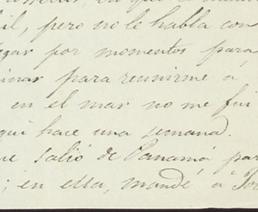 il, pero no le habla con
gar por momentos para
inar para reunirme á
en el mar no me fui
qui hace una semana.
ue salió de Panamá par
; en ella, mandé á